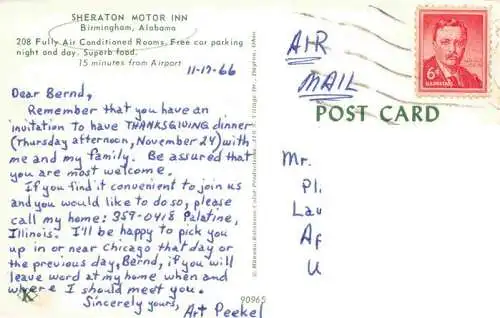 SHERATON MOTOR INN
Birmingham, Alabama
208 Fully Air Conditioned Rooms. Free car parking
night and day. Superb food.
15 minutes from Airport
11-17-66
Dear Bernd,
Remember that you have an
invitation to have THANKSGIVING dinner
(Thursday afternoon, November 24) with
me and my family. Be assured that
you are most welcome.
If you find it convenient to join us
and you would like to do so, please
call my home: 359-0418 Palatine,
Illinois. I'll be happy to pick you
up in or near Chicago that day or
the previous day, Bernd, if you will
leave word at my home when and
where I should meet you.
Sincerely yours,
Art Peekel
K
90965
AIR
MAIL
6¢
POST CARD
Mr.
Pl.
Lau
Af
U